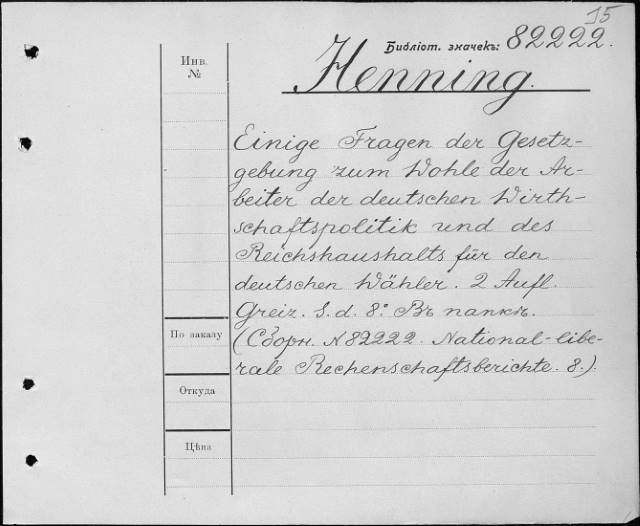 15
Библіот. значекъ: 82222.
Henning.
Инв.
№
Einige Fragen der Gesetz-
gebung zum Wohle der Ar-
beiter der deutschen Wirth-
schaftspolitik und des
Reichshaushalts für den
deutschen Wähler. 2 Aufl.
Greiz. S. d. 8º Въ папкѣ.
(Сборн. N 82222. National-libe-
rale Rechenschaftsberichte. 8.).
По заказу
Откуда
Цѣна